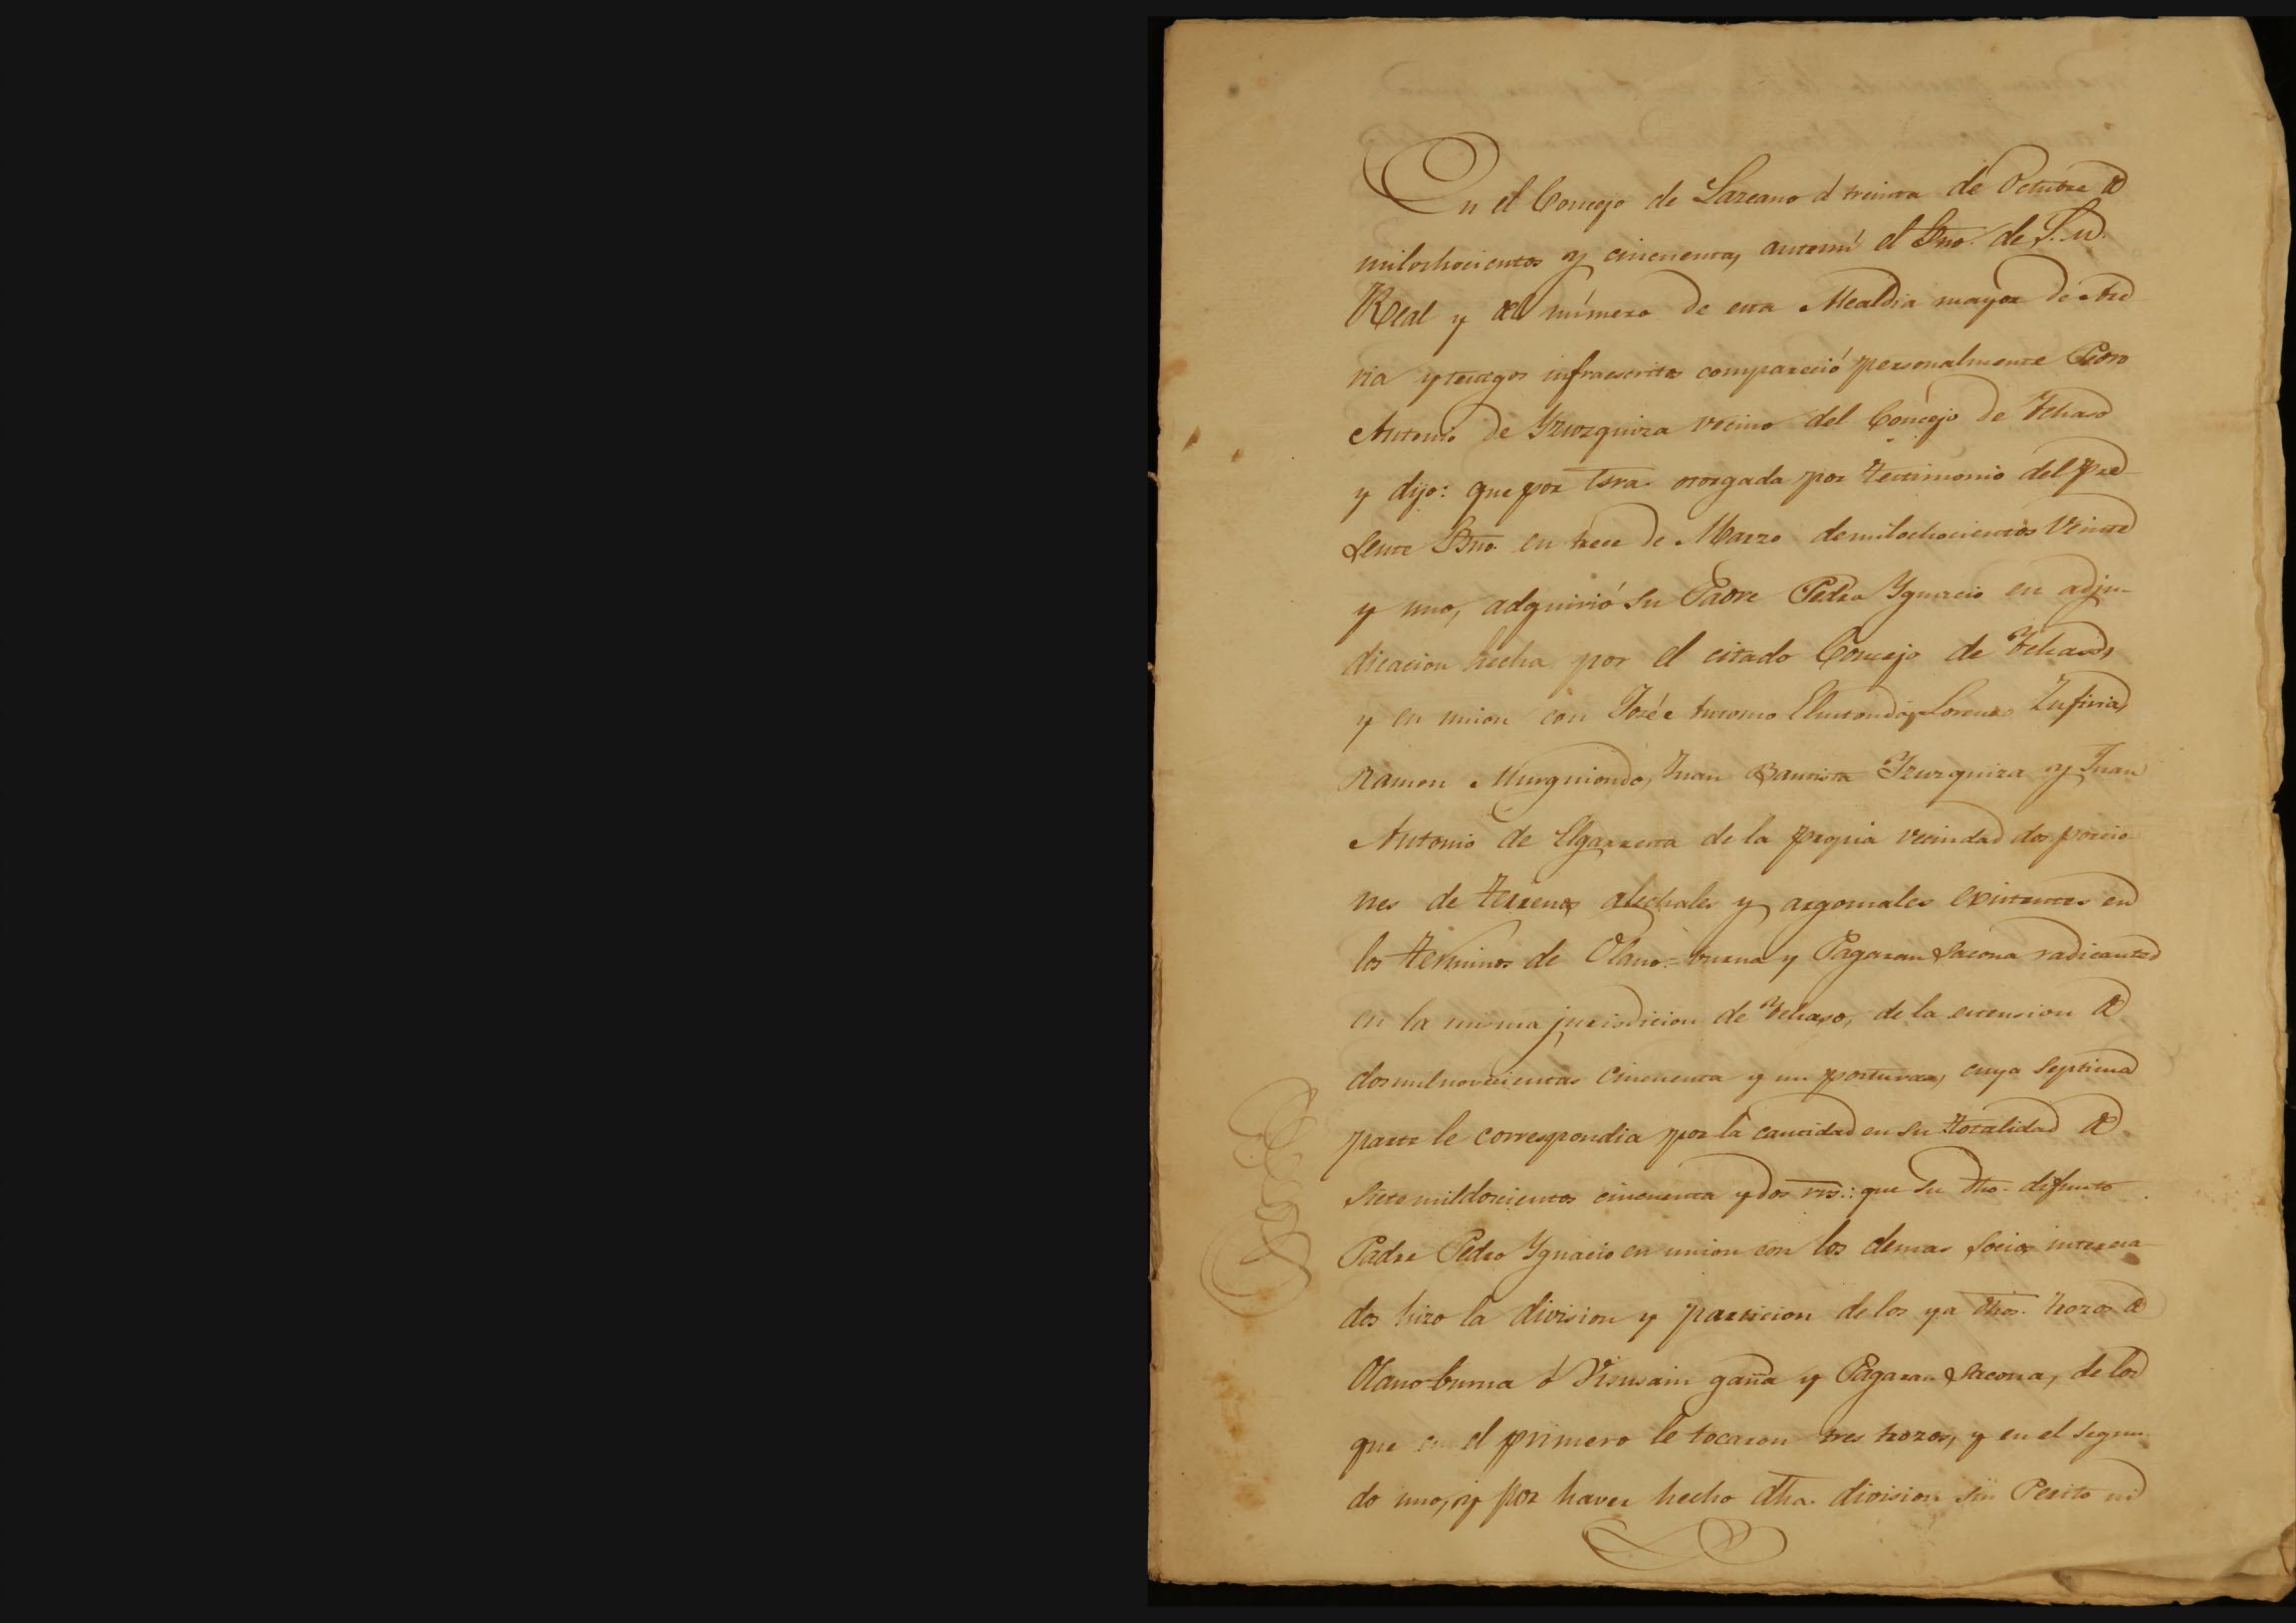 En el Concejo de Lazcano á treinta de Octubre de
milochocientos y cincuenta, antemi el Sno. de S. M.
Real y del número de esta Alcaldia mayor de Are
ria y testigos infraescritos compareció personalmente Pedro
Antonio de Yzurquiza vecino del Concejo de Ychaso
y dijo: que por Esra. otorgada por testimonio del pre
sente Sno. en trece de Marzo demilochocientos veinte
y uno, adquirió su Padre Pedro Ygnacio en adju-
dicacion hecha por el citado Concejo de Ychaso,
y en union con José Antonio Elustondo, Lorenzo Zufiria,
Ramon Murguiondo, Juan Bautista Yzurquiza y Juan
Antonio de Elgarresta de la propia vecindad dos porcio
nes de terrenos elechales y argomales existentes en
los terminos de Olano-buruna y Pagaran sacona radicantes
en la misma jurisdicion de Ychaso, de la extension de
dosmilnovecientas cincuenta y un posturas, cuya septima
parte le correspondia por la cantidad en su totalidad de
sietemildoscientos cincuenta y dos rrs.: que su dho. difunto
Padre Pedro Ygnacio en union con los demas socios interesa
dos hizo la division y particion de los ya dhos. trozos de
Olano-buruna ó Visusain gaña y Pagaran sacona, de los
que en el primero le tocaron tres trozos, y en el segun
do uno, y por haver hecho dha. division sin Perito ni